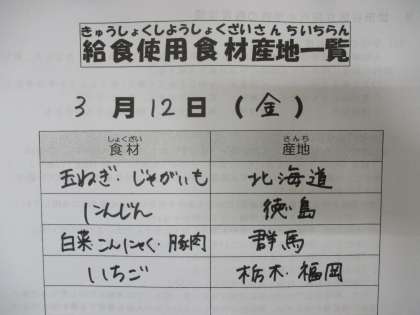 きゅうしょくしようしょくざいさんちいちらん
給食使用食材産地一覧
3月12日(金)
しょくざい さんち
食材 産地
玉ねぎ・じゃがいも 北海道
にんじん 徳島
白菜こんにゃく・豚肉 群馬
いちご 栃木・福岡